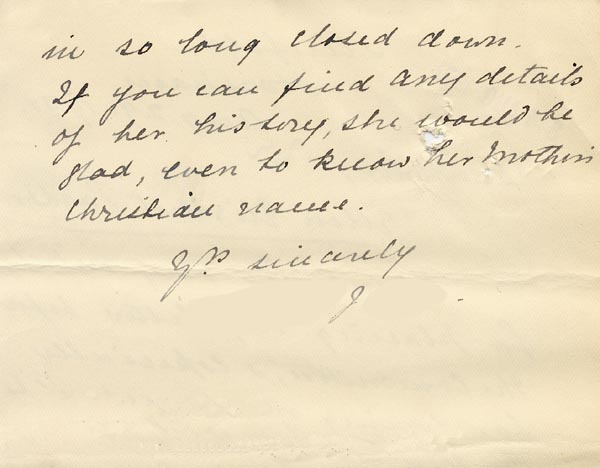 in so long closed down.
If you can find any details
of her history, she would be
glad, even to know her Mother's
Christian name.
Yrs sincerely
J